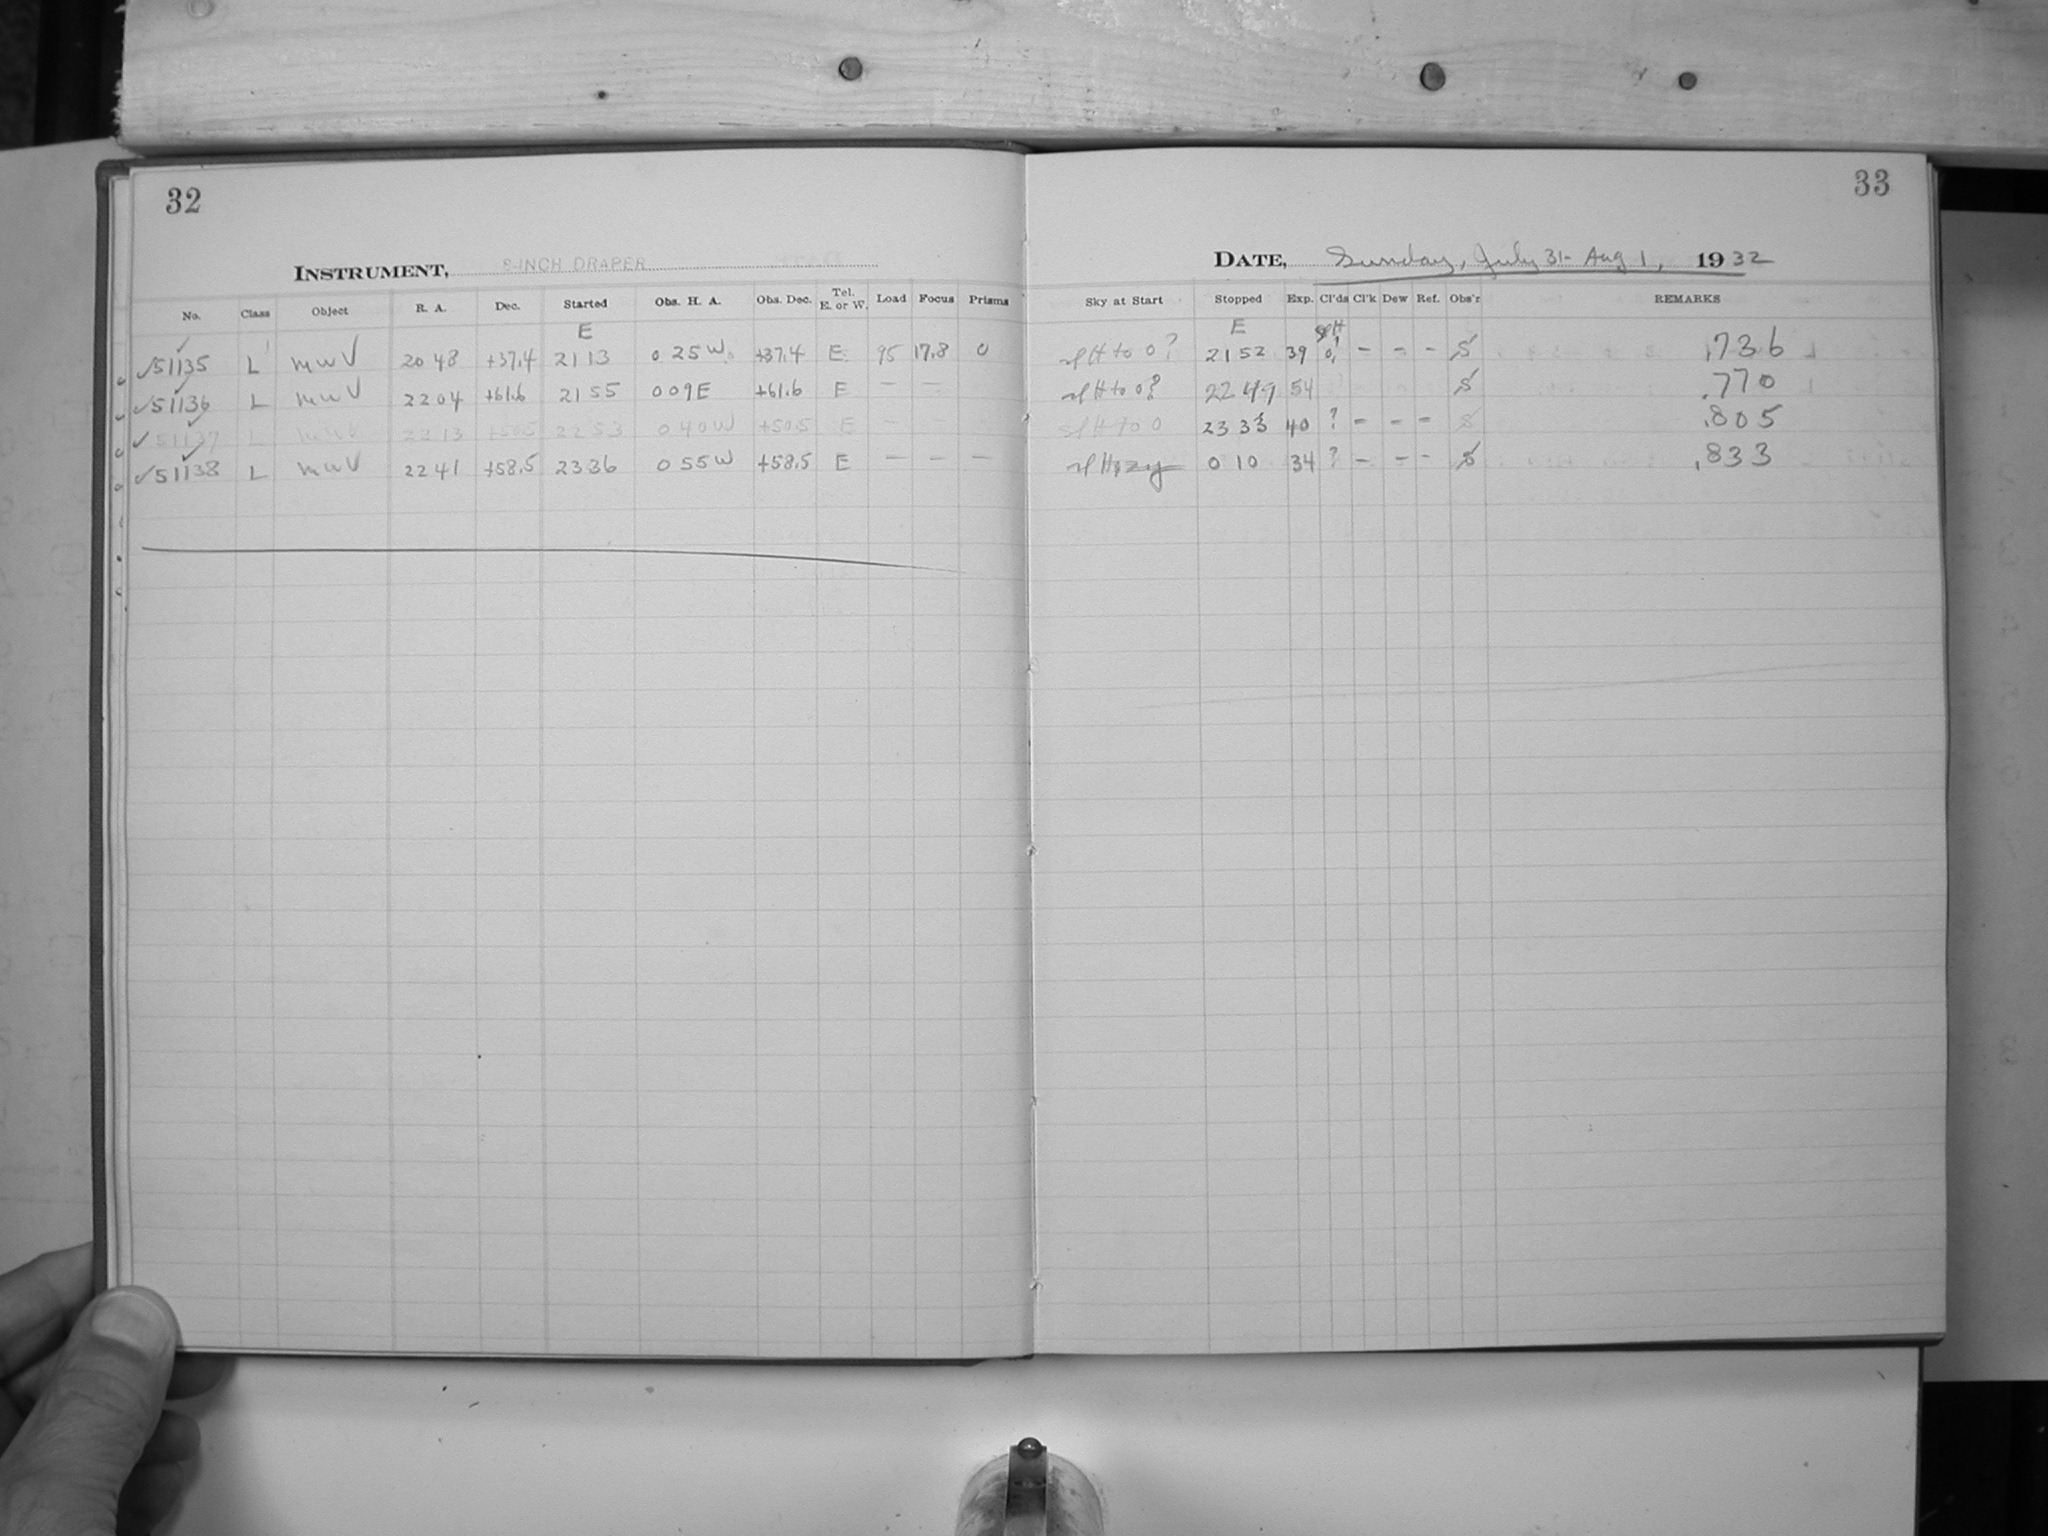 32
INSTRUMENT, 8-INCH DRAPER
No. Class Object R. A. Dec. Started Obs. H. A. Obs. Dec. Tel. E. or W. Load Focus Prisms
E
✓51135 L mwV 20 48 +37.4 21 13 0 25 W +37.4 E 95 17.8 0
✓51136 L mwV 22 04 +61.6 21 55 0 09 E +61.6 E — —
✓51137 L mwV 22 13 +50.5 22 53 0 40 W +50.5 E — — —
✓51138 L mwV 22 41 +58.5 23 36 0 55 W +58.5 E — — —
33
DATE, Sunday, July 31- Aug 1, 1932
Sky at Start Stopped Exp. Cl'ds Cl'k Dew Ref. Obs'r REMARKS
E
slH to 0? 21 52 39 0? – – – S .736
slH to 0? 22 49 54 S .770
slH to 0 23 33 40 ? – – – S .805
slHazy 0 10 34 ? – – – S .833